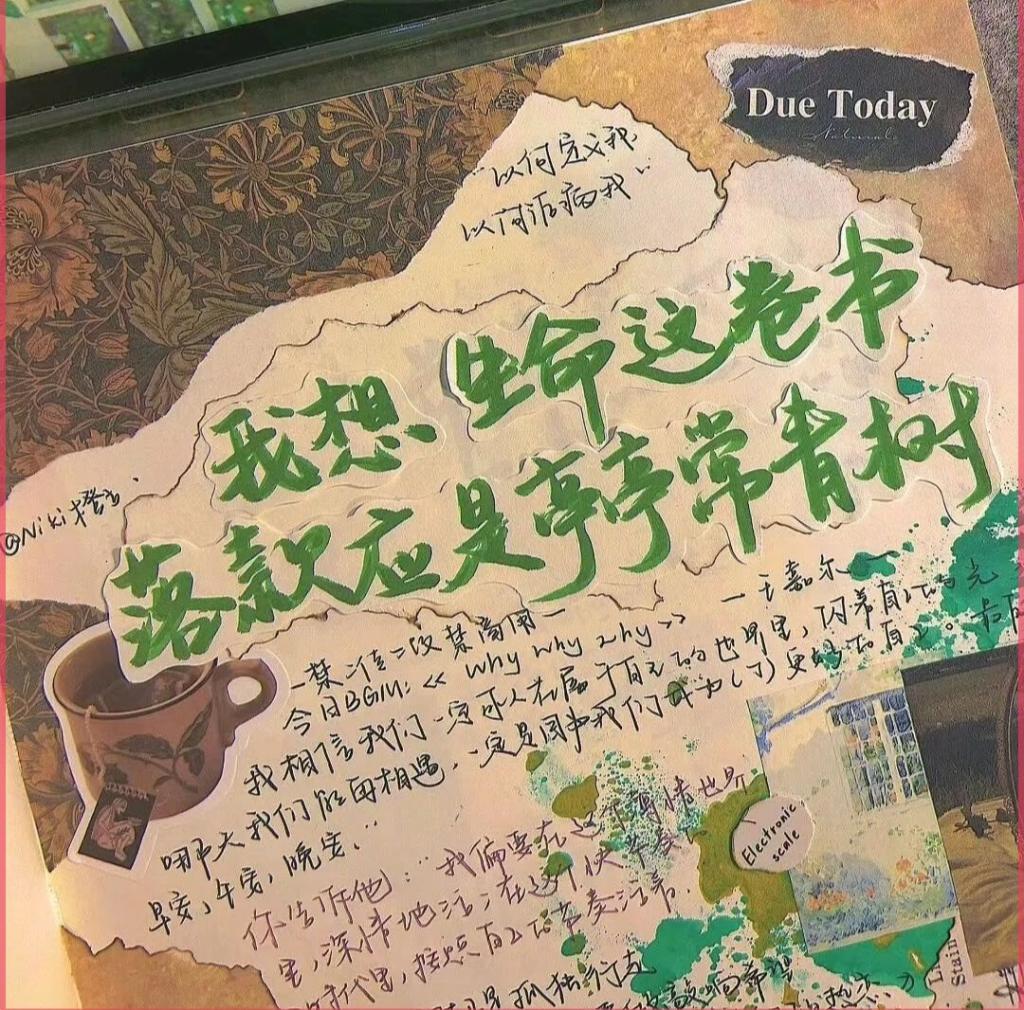 Due Today
以何定义我
以何诟病我
我想 生命这卷书
落款应是亭亭常青树
@Niki橙
—王嘉尔—
—禁二传二改禁商用—
今日BGM:《Why why why》
我相信我们一定可以在属于自己的世界里,闪着自己的光
哪天我们能再相遇,一定是因为我们成为了更好的自己。
早安,午安,晚安.
你告诉他:我偏要在这个
里,深情地活在这个快节奏
时代里,按照自己的节奏活着.
Electronic
scale
孤独行走
Stain